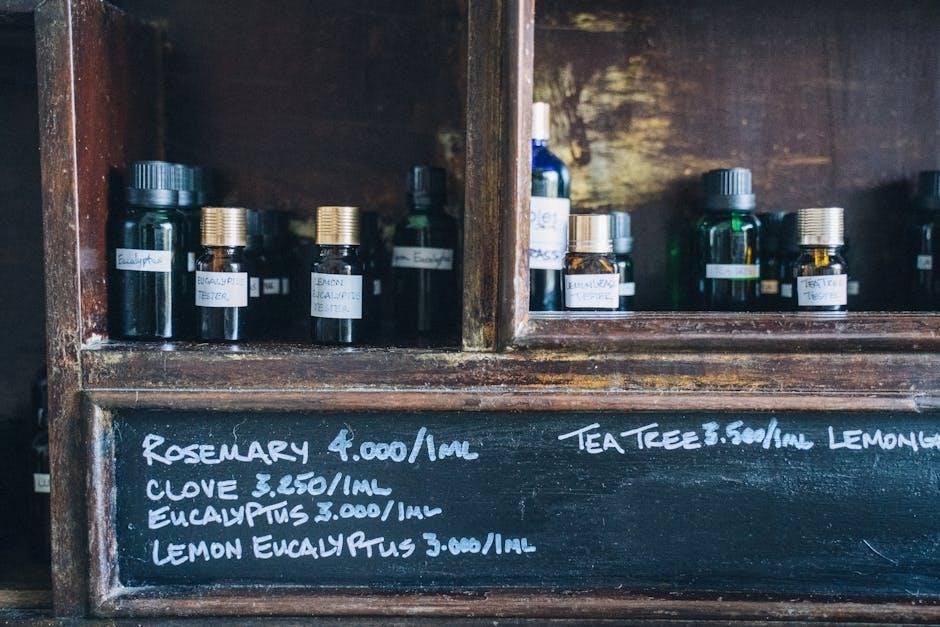 Eucalyptus
EUCALYPTUS
TESTER
LEMON
EUCALYPTUS
TESTER
Lemon Eucalyptus
RASS
LEMONGRASS
TESTER
TEA TREE
TEA TREE
TESTER
ROSEMARY 4.000/1ML
CLOVE 3.250/1ML
EUCALYPTUS 3.000/1ML
LEMON EUCALYPTUS 3.000/1ML
TEA TREE 3.500/1ML LEMONG